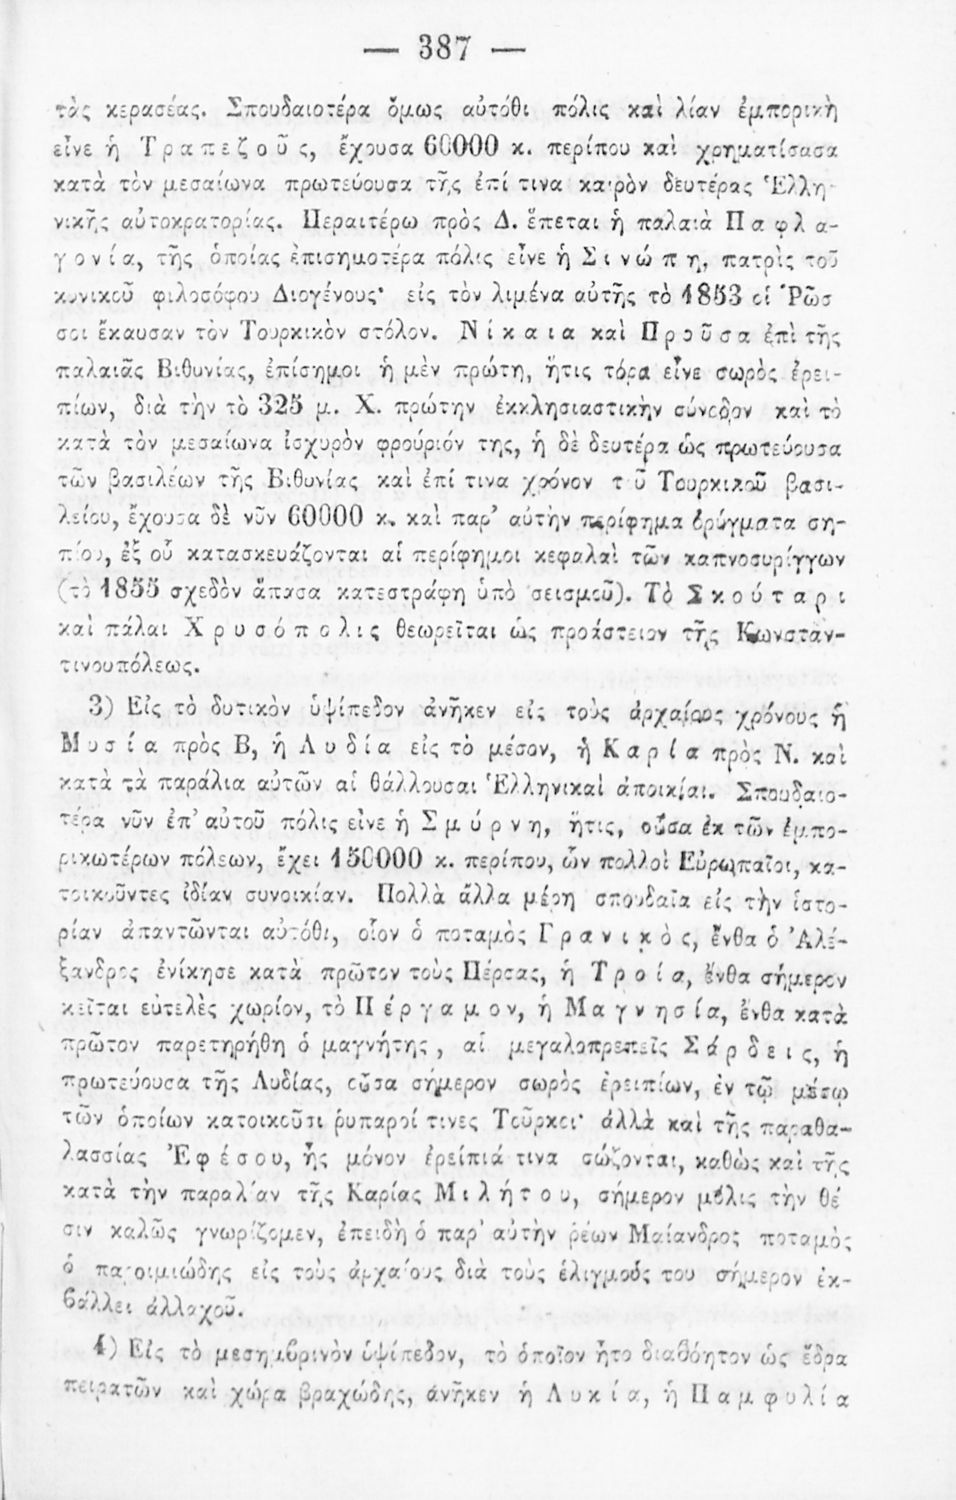 — 387 —
τὰς κερασέας. Σπουδαιοτέρα ὅμως αὐτόθι πόλις καὶ λίαν ἐμπορικὴ
εἶνε ἡ Τραπεζοῦς, ἔχουσα 60000 κ. περίπου καὶ χρηματίσασα
κατὰ τὸν μεσαίωνα πρωτεύουσα τῆς ἐπί τινα καιρὸν δευτέρας Ἑλλη-
νικῆς αὐτοκρατορίας. Περαιτέρω πρὸς Δ. ἕπεται ἡ παλαιὰ Παφλα-
γονία, τῆς ὁποίας ἐπισημοτέρα πόλις εἶνε ἡ Σινώπη, πατρὶς τοῦ
κυνικοῦ φιλοσόφου Διογένους· εἰς τὸν λιμένα αὐτῆς τὸ 1853 οἱ Ῥῶσ
σοι ἔκαυσαν τὸν Τουρκικὸν στόλον. Νίκαια καὶ Προῦσα ἐπὶ τῆς
παλαιᾶς Βιθυνίας, ἐπίσημοι ἡ μὲν πρώτη, ἥτις τόρα εἶνε σωρὸς ἐρει-
πίων, διὰ τὴν τὸ 325 μ. Χ. πρώτην ἐκκλησιαστικὴν σύνοδον καὶ τὸ
κατὰ τὸν μεσαίωνα ἰσχυρὸν φρούριόν της, ἡ δὲ δευτέρα ὡς πρωτεύουσα
τῶν βασιλέων τῆς Βιθυνίας καὶ ἐπί τινα χρόνον τ ῦ Τουρκικοῦ βασι-
λείου, ἔχουσα δὲ νῦν 60000 κ. καὶ παρ' αὐτὴν περίφημα ὀρύγματα ση-
πίου, ἐξ οὗ κατασκευάζονται αἱ περίφημοι κεφαλαὶ τῶν καπνοσυρίγγων
(τὸ 1855 σχεδὸν ἅπασα κατεστράφη ὑπὸ σεισμοῦ). Τὸ Σκούταρι
καὶ πάλαι Χρυσόπολις θεωρεῖται ὡς προάστειον τῆς Κωνσταν-
τινουπόλεως.
3) Εἰς τὸ δυτικὸν ὑψίπεδον ἀνῆκεν εἰς τοὺς ἀρχαίους χρόνους ἡ
Μυσία πρὸς Β, ἡ Λυδία εἰς τὸ μέσον, ἡ Καρία πρὸς Ν. καὶ
κατὰ τὰ παράλια αὐτῶν αἱ θάλλουσαι Ἑλληνικαὶ ἀποικίαι. Σπουδαιο-
τέρα νῦν ἐπ' αὐτοῦ πόλις εἶνε ἡ Σμύρνη, ἥτις, οὖσα ἐκ τῶν ἐμπο-
ρικωτέρων πόλεων, ἔχει 150000 κ. περίπου, ὧν πολλοὶ Εὐρωπαῖοι, κα-
τοικοῦντες ἰδίαν συνοικίαν. Πολλὰ ἄλλα μέρη σπουδαῖα εἰς τὴν ἱστο-
ρίαν ἀπαντῶνται αὐτόθι, οἷον ὁ ποταμὸς Γρανικὸς, ἔνθα ὁ Ἀλέ-
ξανδρος ἐνίκησε κατὰ πρῶτον τοὺς Πέρσας, ἡ Τροία, ἔνθα σήμερον
κεῖται εὐτελὲς χωρίον, τὸ Πέργαμον, ἡ Μαγνησία, ἔνθα κατὰ
πρῶτον παρετηρήθη ὁ μαγνήτης, αἱ μεγαλοπρεπεῖς Σάρδεις, ἡ
πρωτεύουσα τῆς Λυδίας, οὖσα σήμερον σωρὸς ἐρειπίων, ἐν τῷ μέσῳ
τῶν ὁποίων κατοικοῦσι ῥυπαροί τινες Τοῦρκοι· ἀλλὰ καὶ τῆς παραθα-
λασσίας Ἐφέσου, ἧς μόνον ἐρείπιά τινα σώζονται, καθὼς καὶ τῆς
κατὰ τὴν παραλίαν τῆς Καρίας Μιλήτου, σήμερον μόλις τὴν θέ
σιν καλῶς γνωρίζομεν, ἐπειδὴ ὁ παρ' αὐτὴν ῥέων Μαίανδρος ποταμὸς
ὁ παροιμιώδης εἰς τοὺς ἀρχαίους διὰ τοὺς ἑλιγμούς του σήμερον ἐκ-
βάλλει ἀλλαχοῦ.
4) Εἰς τὸ μεσημβρινὸν ὑψίπεδον, τὸ ὁποῖον ἦτο διαβόητον ὡς ἕδρα
πειρατῶν καὶ χώρα βραχώδης, ἀνῆκεν ἡ Λυκία, ἡ Παμφυλία